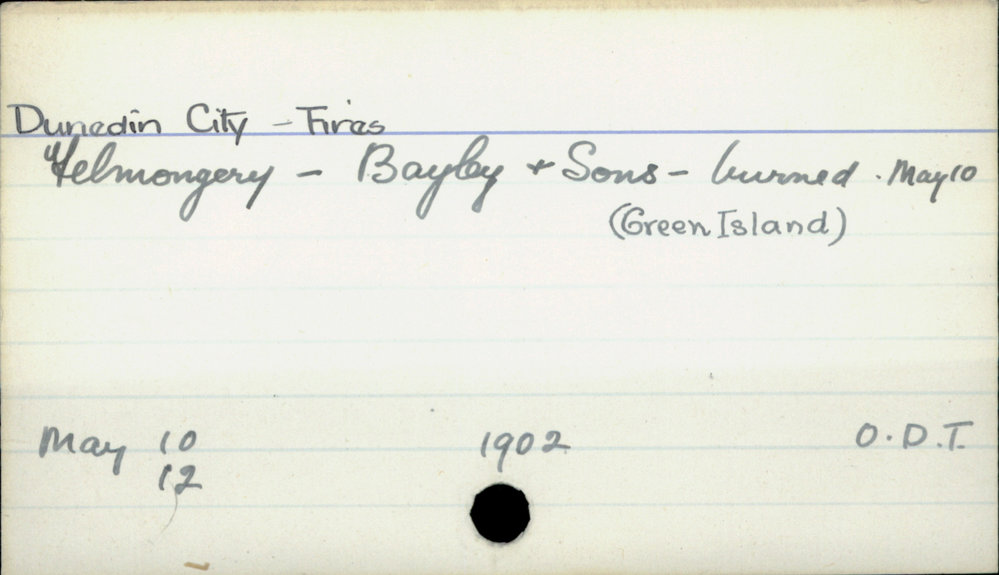 Dunedin City - Fires
Felmongery - Bayley + Sons - burned. May 10
(Green Island)
May 10 1902 O.D.T.
12